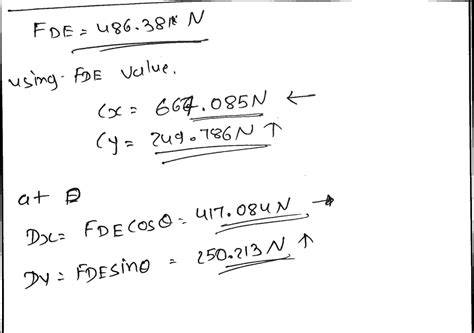 FDE = 486.381 N
using FDE value.
Cx = 667.085N ←
Cy = 249.786N ↑
at D
Dx = FDE cosθ = 417.084 N →
Dy = FDE sinθ = 250.213 N ↑